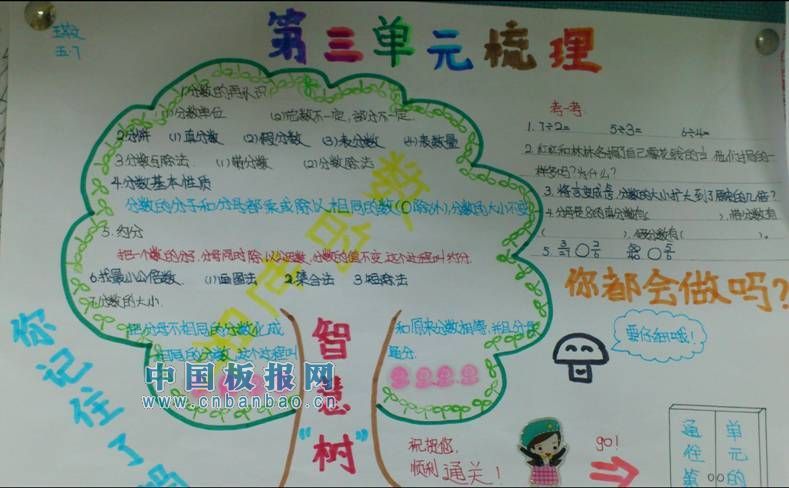 五.7
第三单元梳理
1.分数的再认识
(1)分数单位 (2)总数不一定,部分不一定.
2.分饼 (1)真分数 (2)假分数 (3)表分数 (4)表数量
3.分数与除法 (1)带分数 (2)分数除法
4.分数基本性质
分数的分子和分母都乘或除以相同的数(0除外),分数的大小不变
5.约分
把一个数的分子、分母同时除以公因数,分数的值不变,这个过程叫约分.
6.找最小公倍数. (1)画图法 2.集合法 3.短除法
7.分数的大小.
把分母不相同的分数化成 和原来分数相等,并且分母
相同的分数,这个过程叫 通分.
智慧
"树"
你记住了吗
考一考
1. 7÷2= 5÷3= 6÷4=
2.红红和林林各拥了自己零花钱的 他们付的一
样多吗?为什么?
分数的大小扩大到了原来的几倍?
4.分母是8的真分数有( ),假分数有
( ).
5.
你都会做吗?
要仔细哦!
祝福您,
顺利通关!
go!
通往第
单元的
中国板报网
www.cnbanbao.cn